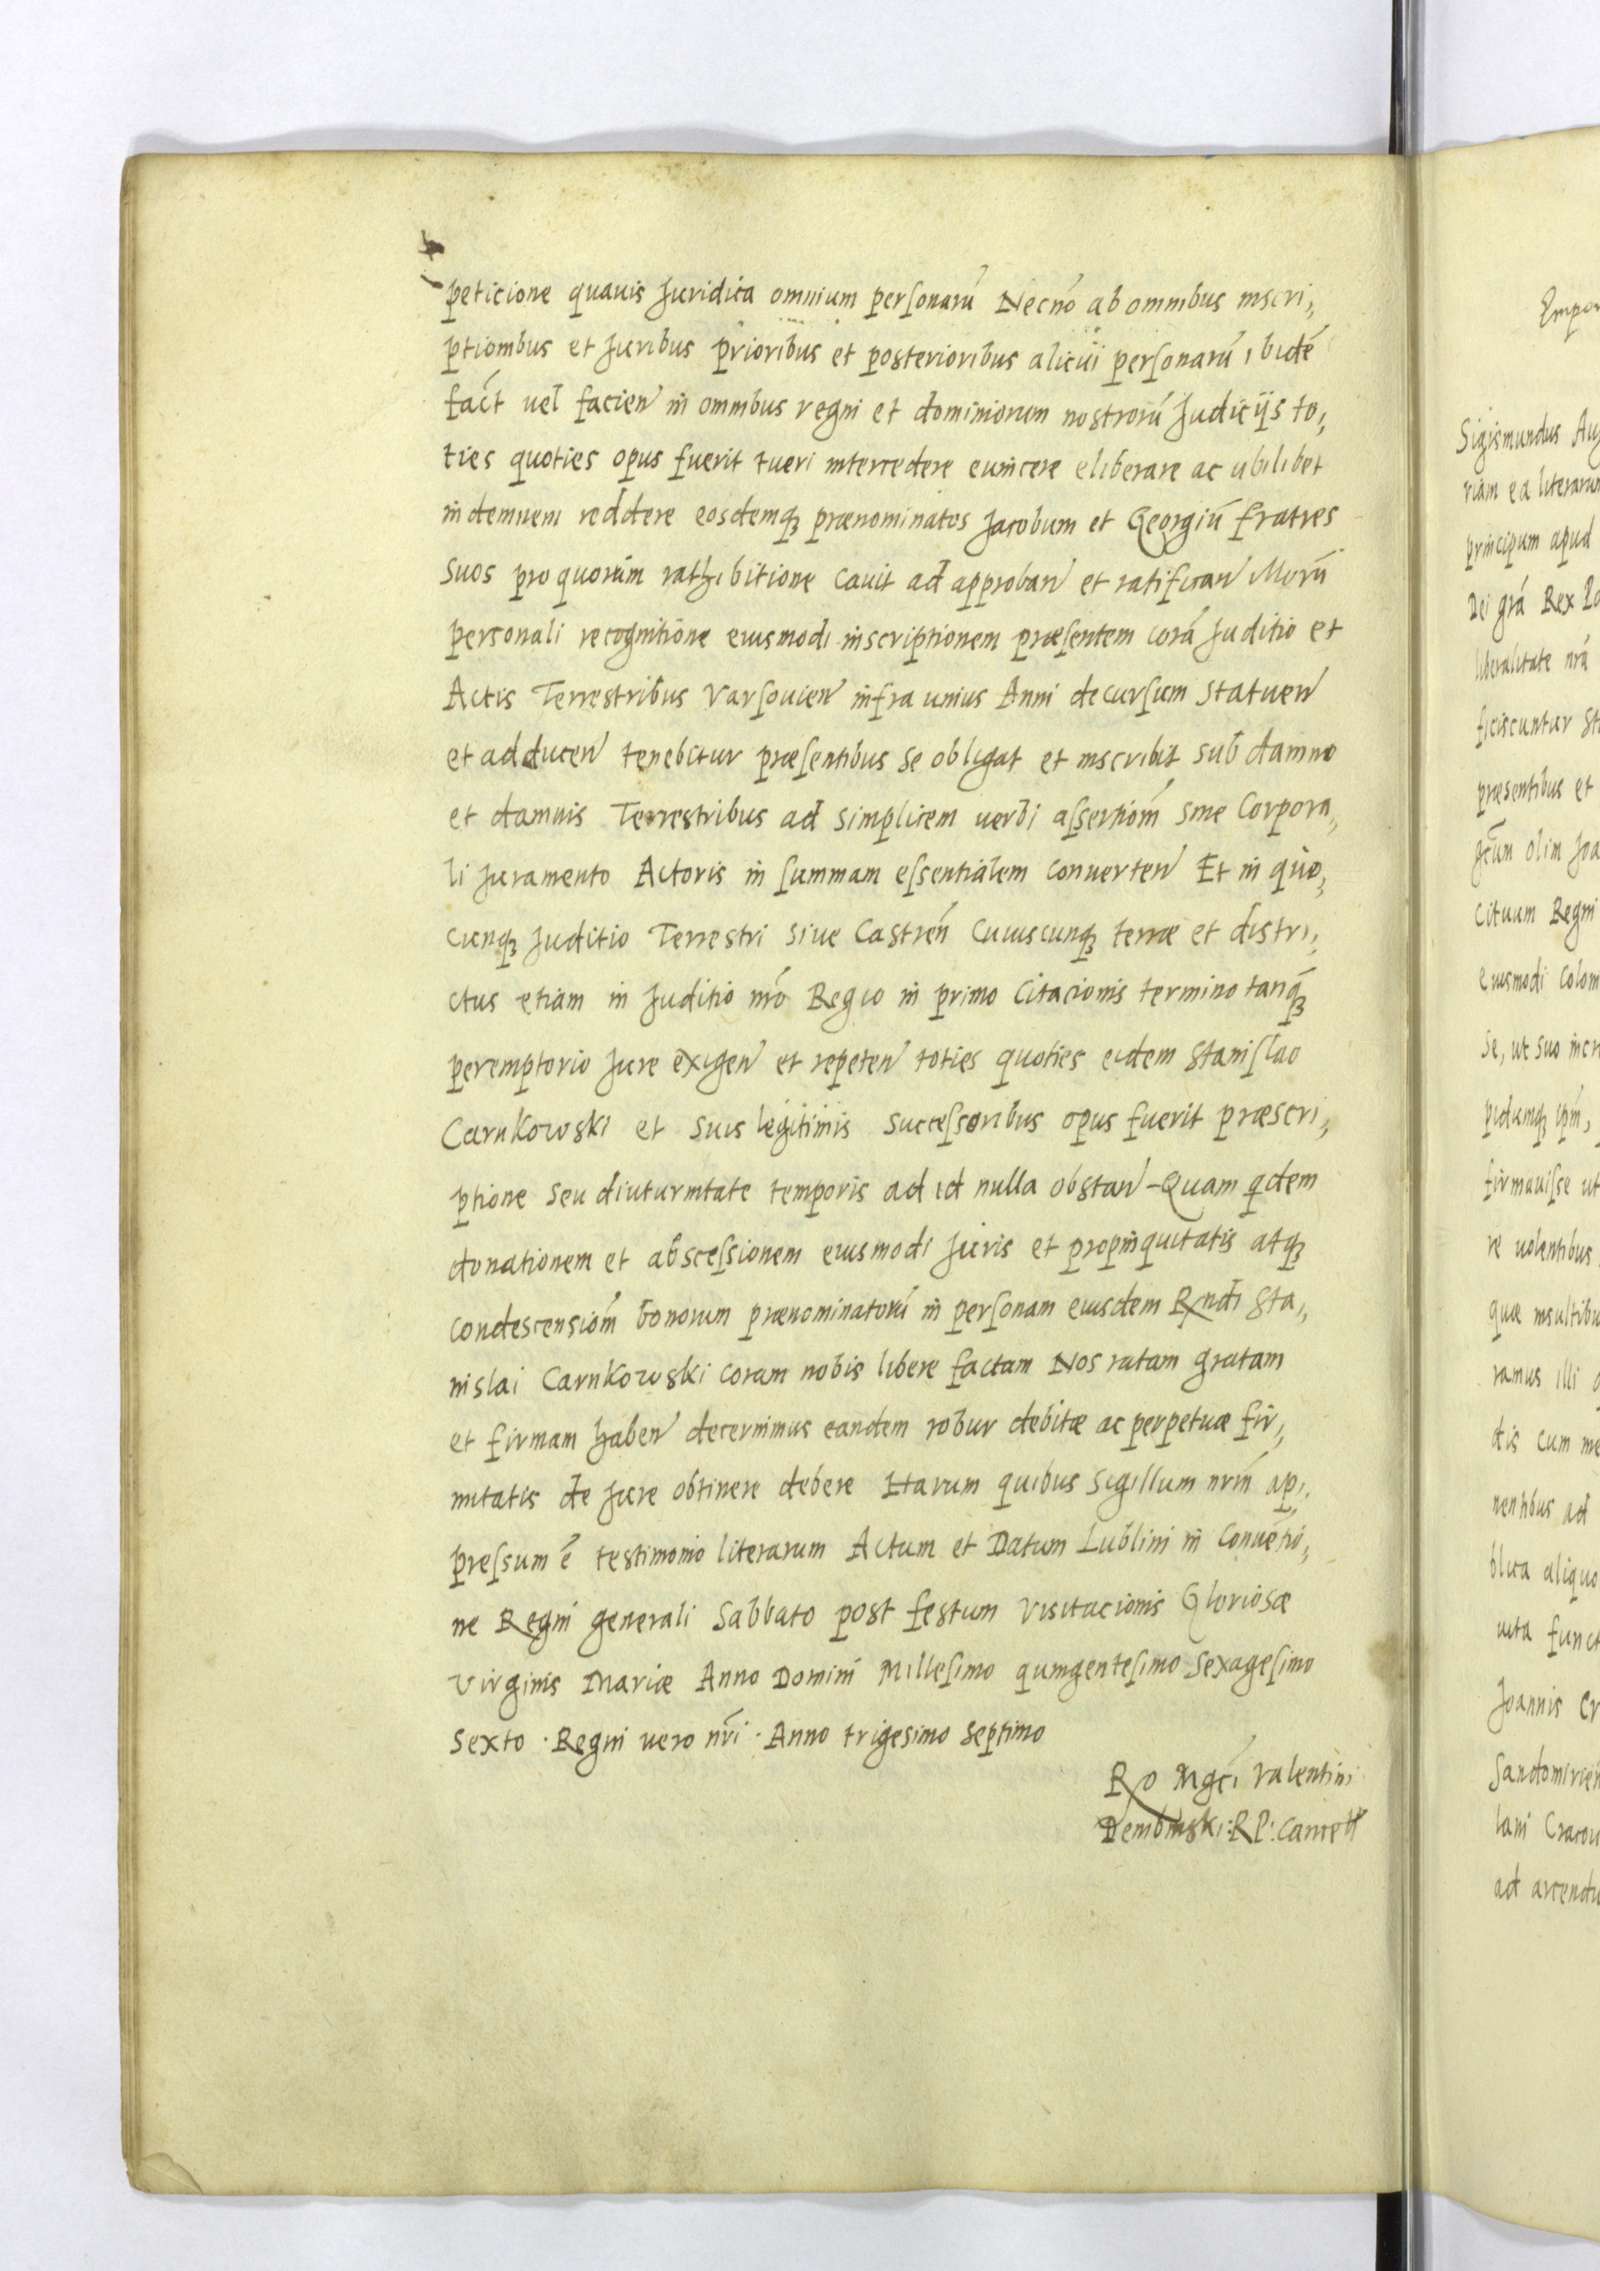 peticione quauis Juridica omnium perſonarū Necnō ab omnibus inscri,,
ptionibus et Juribus prioribus et posterioribus alicui perſonarū ibidē
fact̄ uel facien̄ in omnibus regni et dominiorum nostrorū Judicijs to,,
ties quoties opus fuerit tueri intercedere euincere eliberare ac ubilibet
indemnem reddere eosdemqȝ prænominatos Jacobum et Georgiū fratres
suos pro quorum rathibitione cauit ad approban̄ et ratifican̄ illorū
personali recognitione eiusmodi inscriptionem præſentem corā Juditio et
Actis Terrestribus Varſouien̄ infra unius Anni decurſum statuen̄
et adducen̄ tenebitur præſentibus se obligat et inscribit sub damno
et damnis Terrestribus ad simplicem uerbi aſsertiōm sine Corpora,,
li Juramento Actoris in ſummam eſsentialem conuerten̄ Et in quo,,
cunqȝ Juditio Terrestri siue Castren̄ Cuiuscunqȝ terræ et distri,,
ctus etiam in Juditio nrō Regio in primo Citacionis termino tanqȝ
peremptorio Jure exigen̄ et repeten̄ toties quoties eidem Staniſlao
Carnkowski et suis legitimis succeſsoribus opus fuerit præscri,,
ptione seu diuturnitate temporis ad id nulla obstan̄ - Quam qdem
donationem et absceſsionem eiusmodi Juris et propinquitatis atqȝ
condescensiōm bonorum prænominatorū in perſonam eiusdem Rndi Sta,,
nislai Carnkowski coram nobis libere factam Nos ratam gratam
et firmam haben̄ decernimus eandem robur debitæ ac perpetuæ fir,,
mitatis de Jure obtinere debere Harum quibus Sigillum nrm̄ ap,,
preſsum ē testimonio literarum Actum et Datum Lublini in Conuētio,,
ne Regni generali Sabbato post festum Visitacionis Gloriosæ
Virginis Mariæ Anno Domini Milleſimo quingenteſimo Sexageſimo
Sexto · Regni uero nri̅ · Anno trigesimo septimo
Ro Mgci̅ Valentini
Dembinski: R P: Canc